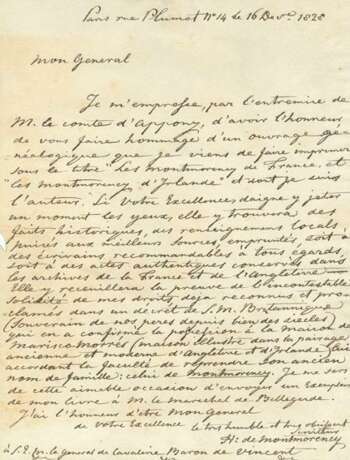 Paris rue Plumet Nº 14 le 16 Dec.bre 1828
Mon General
Je m'empresse, par l'entremise de
M. le comte d'Appony, d'avoir l'honneur
de vous faire hommage d'un ouvrage gé-
néalogique que je viens de faire imprimer
sous le titre "Les Montmorency de France, et
"les Montmorency d'Irlande" et dont je suis
l'auteur. Si Votre Excellence, daigne y jeter
un moment les yeux, elle y trouvera des
faits historiques, des renseignemens locals,
puisés aux meilleurs sources, empruntés soit à
des écrivains recommandables à tous égards
soit à des actes authentiques conservés dans
les archives de la France et de l'Angleterre
Elle y recueillera la preuve de l'incontestable
solidité de mes droits, déja reconnus et pro-
clamés dans un décret de S. M. Britannique
(Souverain de nos peres depuis bien des siecles)
qui en a confirmé la possession à la Maison de
Marisco Morrès (maison illustre dans la pairage
ancienne et moderne d'Angleterre et d'Irlande) lui
accordant la faculté de reprendre son ancien
nom de famille: celui de Montmorency. Je me sers
de cette aimable occasion d'envoyer un Exemplaire
de mon livre à M. le Marechal de Bellegarde.
J'ai l'honneur d'être Mon General
de votre Excellence le très humble et très obéissant
Serviteur
H. de Montmorency
à S. E. Mr. le General de Cavalerie Baron de Vincent